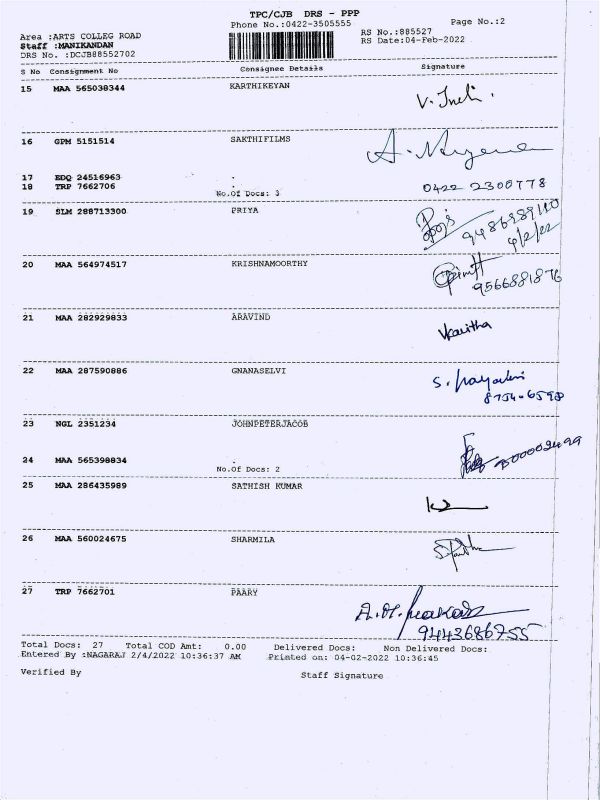 TPC/CJB DRS - PPP
Phone No.:0422-3505555
Page No.:2
Area :ARTS COLLEG ROAD
RS No.:885527
Staff :MANIKANDAN
RS Date:04-Feb-2022
DRS No. :DCJB88552702
S No Consignment No Consignee Details Signature
15 MAA 565038344 KARTHIKEYAN
16 GPM 5151514 SAKTHIFILMS
17 EDQ 24516963 .
18 TRP 7662706 No.Of Docs: 3 0422 2300778
19 SLM 288713300 PRIYA
9486989110
4/2/22
20 MAA 564974517 KRISHNAMOORTHY
9566881876
21 MAA 282929833 ARAVIND Vkavitha
22 MAA 287590886 GNANASELVI
23 NGL 2351234 JOHNPETERJACOB
24 MAA 565398834 .
No.Of Docs: 2
25 MAA 286435989 SATHISH KUMAR
26 MAA 560024675 SHARMILA
27 TRP 7662701 PAARY
9443686755
Total Docs: 27 Total COD Amt: 0.00 Delivered Docs: Non Delivered Docs:
Entered By :NAGARAJ 2/4/2022 10:36:37 AM Printed on: 04-02-2022 10:36:45
Verified By Staff Signature